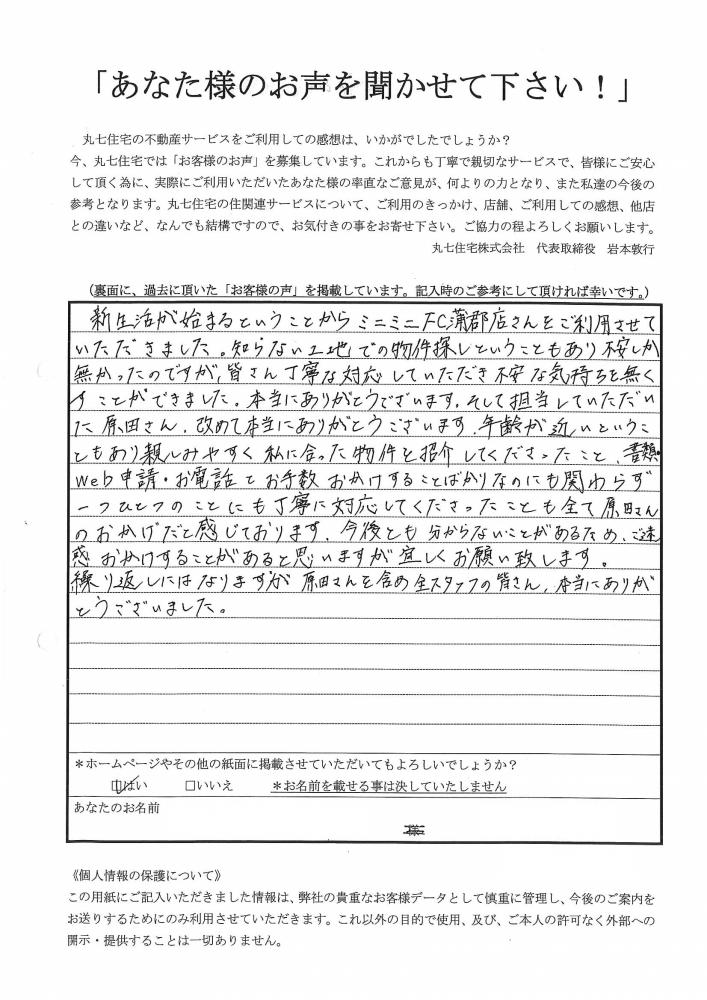 「あなた様のお声を聞かせて下さい！」
丸七住宅の不動産サービスをご利用しての感想は、いかがでしたでしょうか？
今、丸七住宅では「お客様のお声」を募集しています。これからも丁寧で親切なサービスで、皆様にご安心
して頂く為に、実際にご利用いただいたあなた様の率直なご意見が、何よりの力となり、また私達の今後の
参考となります。丸七住宅の住関連サービスについて、ご利用のきっかけ、店舗、ご利用しての感想、他店
との違いなど、なんでも結構ですので、お気付きの事をお寄せ下さい。ご協力の程よろしくお願いします。
丸七住宅株式会社　代表取締役　岩本敦行
（裏面に、過去に頂いた「お客様の声」を掲載しています。記入時のご参考にして頂ければ幸いです。）
新生活が始まるということからミニミニFC蒲郡店さんをご利用させて
いただきました。知らない土地での物件探しということもあり不安しか
無かったのですが、皆さん丁寧な対応していただき不安な気持ちを無く
すことができました。本当にありがとうございます。そして担当していただい
た原田さん、改めて本当にありがとうございます。年齢が近いというこ
ともあり親しみやすく私に合った物件を紹介してくださったこと、書類・
Web申請・お電話とお手数おかけすることばかりなのにも関わらず
一つひとつのことにも丁寧に対応してくださったことも全て原田さん
のおかげだと感じております。今後とも分からないことがあるため、ご迷
惑おかけすることがあると思いますが宜しくお願い致します。
繰り返しにはなりますが原田さんを含め全スタッフの皆さん、本当にありが
とうございました。
＊ホームページやその他の紙面に掲載させていただいてもよろしいでしょうか？
☑はい　□いいえ　＊お名前を載せる事は決していたしません
あなたのお名前
様
《個人情報の保護について》
この用紙にご記入いただきました情報は、弊社の貴重なお客様データとして慎重に管理し、今後のご案内を
お送りするためにのみ利用させていただきます。これ以外の目的で使用、及び、ご本人の許可なく外部への
開示・提供することは一切ありません。